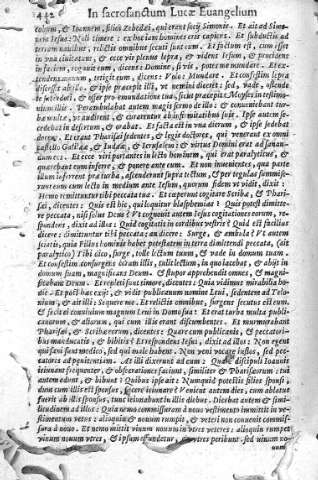 442 In sacrosanctum Lucæ Euangelium
cobum, & Ioannem, filios Zebedæi, qui erant socij Simonis. Et ait ad Simo-
nem Iesus: Noli timere: ex hoc iam homines eris capiens. Et subductis ad
terram nauibus, relictis omnibus secuti sunt eum. Et factum est, cum esset
in vna ciuitatum, & ecce vir plenus lepra, & videns Iesum, & procidens
in faciem, rogauit eum, dicens: Domine, si vis, potes me mundare. Et ex-
tendens manum, tetigit eum, dicens: Volo: Mundare. Et confestim lepra
discessit ab illo. & ipse præcepit illi, vt nemini diceret: sed, vade, ostende
te sacerdoti, & offer pro emundatione tua, sicut præcepit Moyses in testimo-
nium illis. Perambulabat autem magis sermo de illo: & conueniebant tur-
ba multæ, vt audirent, & curarentur ab infirmitatibus suis. Ipse autem se-
cedebat in desertum, & orabat. Et facta est in vna dierum, & ipse sedebat
docens. Et erant Pharisæi sedentes, & legis doctores, qui venerant ex omni
castello Galilææ, & Iudææ, & Ierusalem: & virtus Domini erat ad sanan-
dum eos. Et ecce viri portantes in lecto hominem, qui erat paralyticus, &
quærebant eum inferre, & ponere ante eum. Et non inuenientes, qua parte
illum inferrent præ turba, ascenderunt supra tectum, & per tegulas summise-
runt eum cum lecto in medium ante Iesum, quorum fidem vt vidit, dixit:
Homo remittuntur tibi peccata tua. Et cœperunt cogitare Scribæ, & Phari-
sæi, dicentes: Quis est hic, qui loquitur blasphemias? Quis potest dimitte-
re peccata, nisi solus Deus? Vt cognouit autem Iesus cogitationes eorum, re-
spondens, dixit ad illos: Quid cogitatis in cordibus vestris? Quid est facilius
dicere: dimittuntur tibi peccata: an dicere: Surge, & ambula? Vt autem
sciatis, quia Filius hominis habet potestatem in terra dimittendi peccata, (ait
paralytico) Tibi dico, surge, tolle lectum tuum, & vade in domum tuam.
Et confestim consurgens coram illis, tulit lectum, in quo iacebat, & abijt in
domum suam, magnificans Deum. Et stupor apprehendit omnes, & magni-
ficabant Deum. Et repleti sunt timore, dicentes: Quia vidimus mirabilia ho-
die. Et post hæc exijt, & vidit publicanum nomine Leui, sedentem ad Telo-
nium, & ait illi: Sequere me. Et relictis omnibus, surgens secutus est eum.
& fecit ei conuiuium magnum Leui in Domo sua: Et erat turba multa publi-
canorum, & aliorum, qui cum illis erant discumbentes. Et murmurabant
Pharisæi, & Scribæ eorum, dicentes: Quare cum publicanis, & peccatori-
bus manducatis, & bibitis? Et respondens Iesus, dixit ad illos: Non egent
qui sani sunt medico, sed qui male habent. Non veni vocare iustos, sed pec-
catores ad pœnitentiam. At illi dixerunt ad eum: Quare discipuli Ioannis
ieiunant frequenter, & obsecrationes faciunt, similiter & Pharisæorum: tui
autem edunt, & bibunt? Quibus ipse ait: Numquid potestis filios sponsi,
dum cum illis est sponsus, facere ieiunare? Venient autem dies, cum ablatus
fuerit ab illis sponsus, tunc ieiunabunt in illis diebus. Dicebat autem & simi-
litudinem ad illos: Quia nemo commissuram à nouo vestimento immittit in ve-
stimentum vetus: alioquin & nouum rumpit, & veteri non conuenit commis-
sura à nouo. Et nemo mittit vinum nouum in vtres veteres: alioquin rumpet
vinum nouum vtres, & ipsum effundetur, & vtres peribunt. sed vinum no-
uum